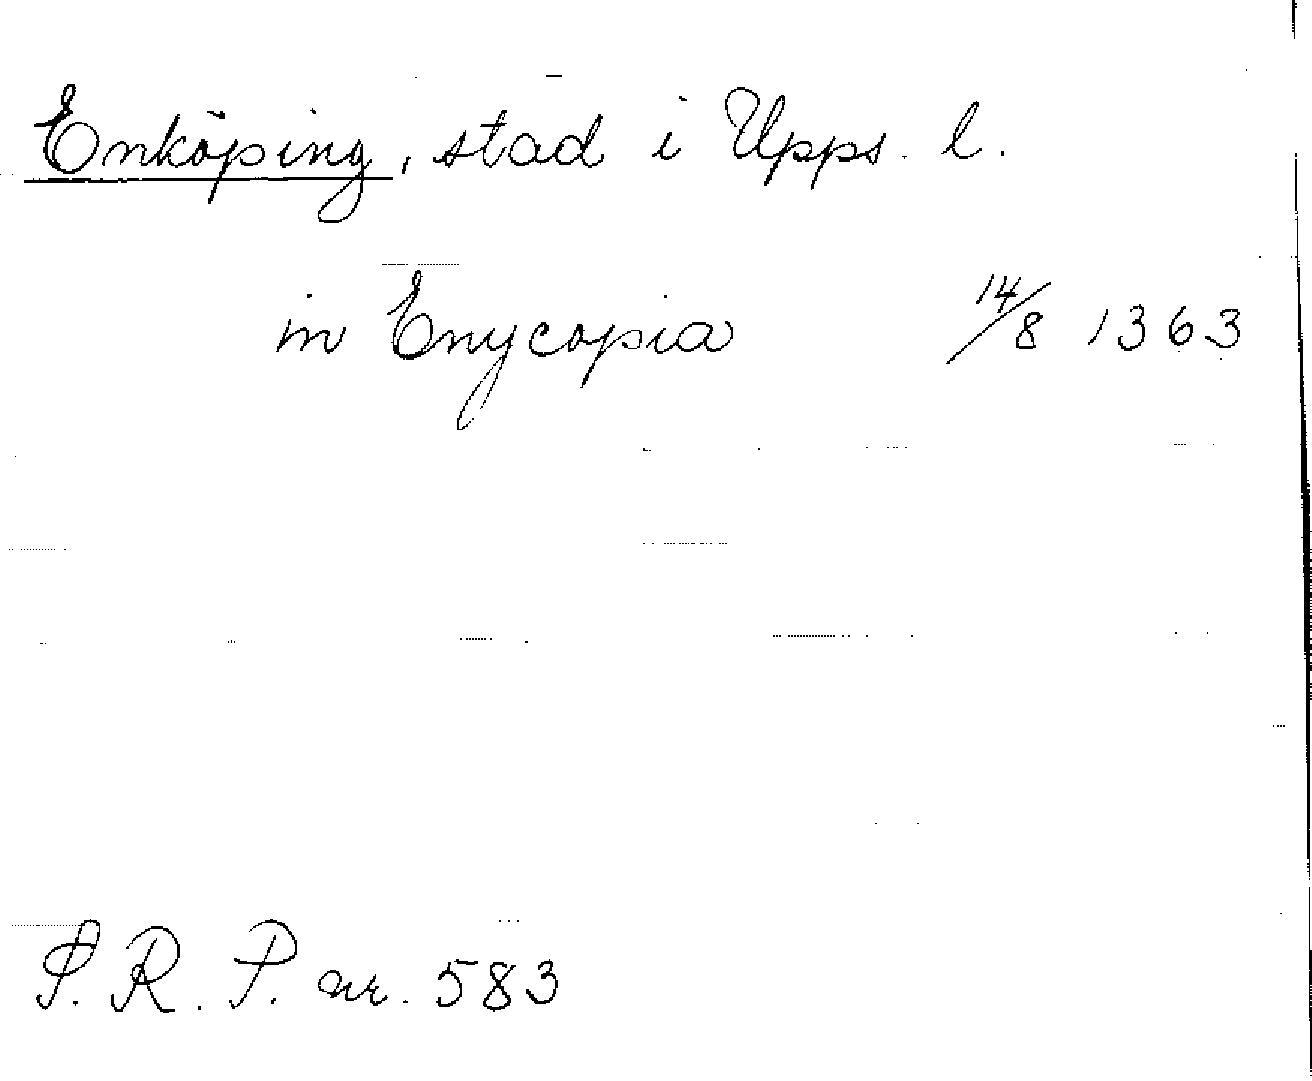 Enköping, stad i Upps. l.
in Enycopia 14/8 1363
S. R. P. nr. 583